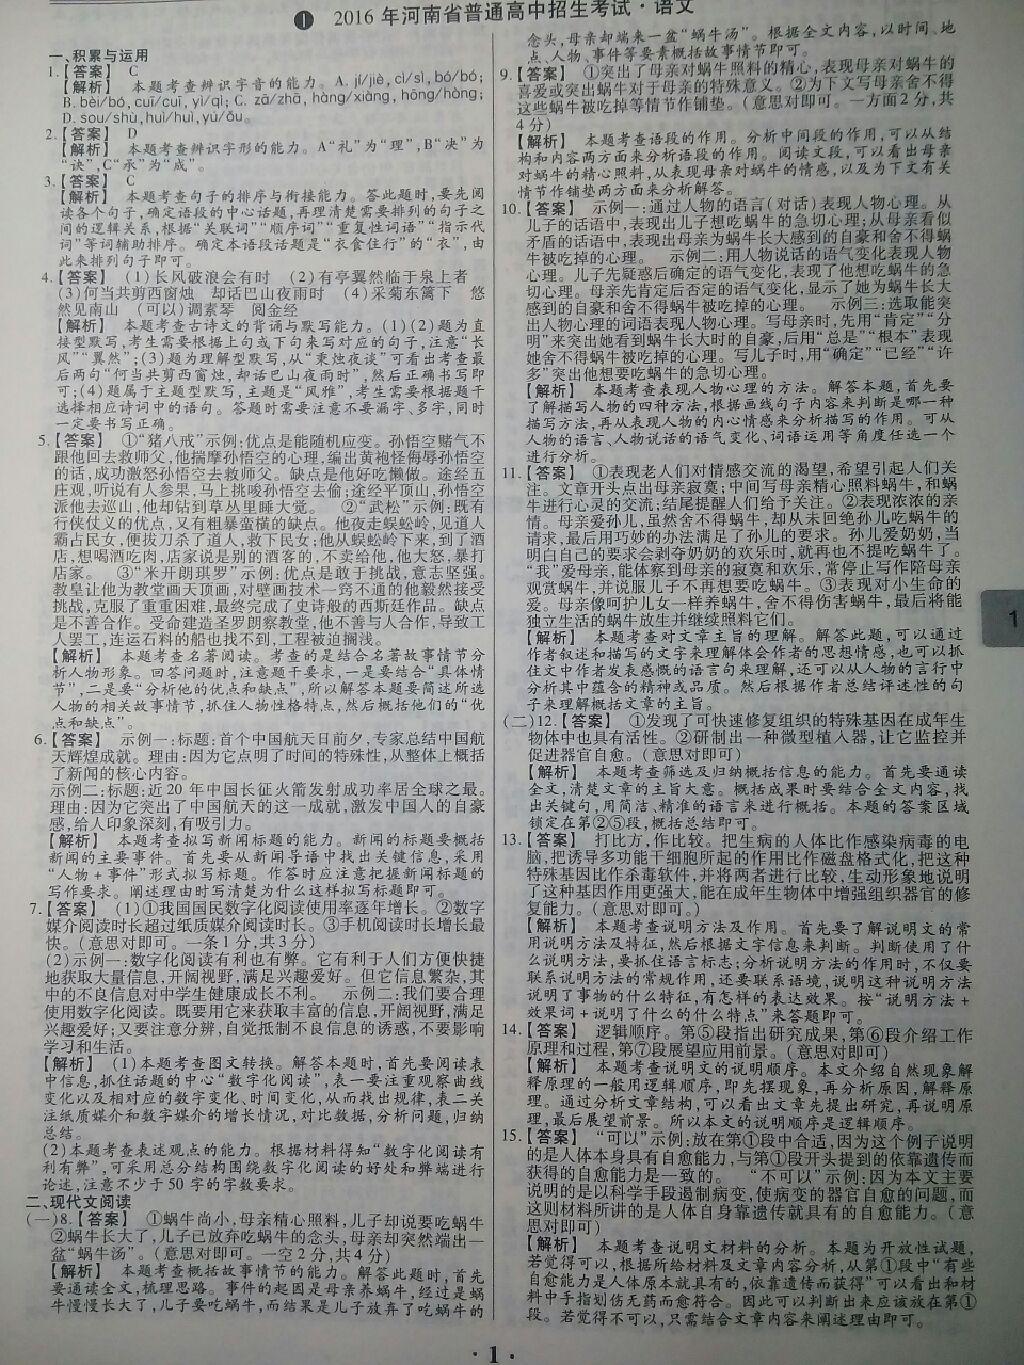 ❶ 2016 年河南省普通高中招生考试·语文
一、积累与运用
1.【答案】 C
【解析】 本题考查辨识字音的能力。A. jí/jiè, cì/sì, bó/bó;
B. bèi/bó, cuī/cuī, yì/qì; C. zā/zhā, hàng/xiàng, hōng/hòng;
D. sou/shù, huì/huì, yū/ǎu。
2.【答案】 D
【解析】 本题考查辨识字形的能力。A“礼”为“理”,B“决”为
“诀”,C“承”为“成”。
3.【答案】 C
【解析】 本题考查句子的排序与衔接能力。答此题时,要先阅
读各个句子,确定语段的中心话题,再理清楚需要排列的句子之
间的逻辑关系,根据“关联词”“顺序词”“重复性词语”“指示代
词”等词辅助排序。确定本语段话题是“衣食住行”的“衣”,由
此来排列句子即可。
4.【答案】 (1)长风破浪会有时 (2)有亭翼然临于泉上者
(3)何当共剪西窗烛 却话巴山夜雨时 (4)采菊东篱下 悠
然见南山 (可以)调素琴 阅金经
【解析】 本题考查古诗文的背诵与默写能力。(1)(2)题为直
接型默写,考生需要根据上句或下句来写对应的句子,注意“长
风”“翼然”;(3)题为理解型默写,从“秉烛夜谈”可看出考查最
后两句“何当共剪西窗烛,却话巴山夜雨时”,然后正确书写即
可;(4)题属于主题型默写,主题是“风雅”,考生需要根据题干
选择相应诗词中的语句。答题时需要注意不要漏字、多字,同时
一定要书写正确。
5.【答案】 ①“猪八戒”示例:优点是能随机应变。孙悟空赌气不
跟他回去救师父,他揣摩孙悟空的心理,编出黄袍怪侮辱孙悟空
的话,成功激怒孙悟空去救师父。缺点是他好吃懒做。途经五
庄观,听说有人参果,马上挑唆孙悟空去偷;途经平顶山,孙悟空
派他去巡山,他却钻到草丛里睡大觉。 ②“武松”示例:既有
行侠仗义的优点,又有粗暴蛮横的缺点。他夜走蜈蚣岭,见道人
霸占民女,便拔刀杀了道人,救下民女;他从蜈蚣岭下来,到了酒
店,想喝酒吃肉,店家说是别的酒客的,不卖给他,他大怒,暴打
店家。 ③“米开朗琪罗”示例:优点是敢于挑战,意志坚强。
教皇让他为教堂画天顶画,对壁画技术一窍不通的他毅然接受
挑战,克服了重重困难,最终完成了史诗般的西斯廷作品。缺点
是不善合作。受命建造圣罗朗察教堂,他不善与人合作,导致工
人罢工,连运石料的船也找不到,工程被迫搁浅。
【解析】 本题考查名著阅读。考查的是结合名著故事情节分
析人物形象。回答问题时,注意题干要求,一是要结合“具体情
节”,二是要“分析他的优点和缺点”,所以解答本题要简述所选
人物的相关故事情节,抓住人物性格特点,然后概括他们的“优
点和缺点”。
6.【答案】 示例一:标题:首个中国航天日前夕,专家总结中国航
天辉煌成就。理由:因为它点明了时间的特殊性,从整体上概括
了新闻的核心内容。
示例二:标题:近 20 年中国长征火箭发射成功率居全球之最。
理由:因为它突出了中国航天的这一成就,激发中国人的自豪
感,给人印象深刻,有吸引力。
【解析】 本题考查拟写新闻标题的能力。新闻的标题要概括
新闻的主要事件。首先要从新闻导语中找出关键信息,采用
“人物+事件”形式拟写标题。作答时应注意把握新闻标题的
写作要求。阐述理由时写清楚为什么这样拟写标题即可。
7.【答案】 (1)①我国国民数字化阅读使用率逐年增长。②数字
媒介阅读时长超过纸质媒介阅读时长。③手机阅读时长增长最
快。(意思对即可。一条1分,共3分)
(2)示例一:数字化阅读有利也有弊。它有利于人们方便快捷
地获取大量信息,开阔视野,满足兴趣爱好。但它信息繁杂,其
中的不良信息对中学生健康成长不利。 示例二:我们要合理
使用数字化阅读。既要用它来获取丰富的信息,开阔视野,满足
兴趣爱好;又要注意分辨,自觉抵制不良信息的诱惑,不要影响
学习和生活。
【解析】 (1)本题考查图文转换。解答本题时,首先要阅读表
中信息,抓住话题的中心“数字化阅读”,表一要注重观察曲线
变化以及相对应的数字变化、时间变化,从而找出规律,表二关
注纸质媒介和数字媒介的增长情况,对比数据,分析问题,归纳
总结。
(2)本题考查表述观点的能力。根据材料得知“数字化阅读有
利有弊”,可采用总分结构围绕数字化阅读的好处和弊端进行
论述,注意不少于 50 字的字数要求。
二、现代文阅读
(一)8.【答案】 ①蜗牛尚小,母亲精心照料,儿子却说要吃蜗牛
②蜗牛长大了,儿子已放弃吃蜗牛的念头,母亲却突然端出一
盆“蜗牛汤”。(意思对即可。一空2分,共4分)
【解析】 本题考查概括故事情节的能力。解答此题时,首先
要通读全文,梳理思路。事件的起因是母亲养蜗牛,经过是蜗
牛慢慢长大了,儿子要吃蜗牛,而结果是儿子放弃了吃蜗牛的
念头,母亲却端来一盆“蜗牛汤”。根据全文内容,以时间、地
点、人物、事件等要素概括故事情节即可。
9.【答案】 ①突出了母亲对蜗牛照料的精心,表现母亲对蜗牛的
喜爱或突出蜗牛对于母亲的特殊意义。②为下文写母亲舍不得
这些蜗牛被吃掉等情节作铺垫。(意思对即可。一方面2分,共
4分)
【解析】 本题考查语段的作用。分析中间段的作用,可以从结
构和内容两方面来分析语段的作用。阅读文段,可以看出母亲
对蜗牛的精心照料,从表现母亲对蜗牛的情感,以及为下文有关
情节作铺垫两方面来分析解答。
10.【答案】 示例一:通过人物的语言(对话)表现人物心理。从
儿子的话语中,表现出儿子想吃蜗牛的急切心理;从母亲看似
矛盾的话语中,表现出母亲为蜗牛长大感到的自豪和舍不得蜗牛
被吃掉的心理。 示例二:用人物说话的语气变化表现人物
心理。儿子先疑惑后确定的语气变化,表现了他想吃蜗牛的急
切心理。母亲先肯定后否定的语气变化,显示了她为蜗牛长大
感到的自豪和舍不得蜗牛被吃掉的心理。 示例三:选取能突
出人物心理的词语表现人物心理。写母亲时,先用“肯定”“分
明”来突出她看到蜗牛长大时的自豪,后用“总是”“根本”表现
她舍不得蜗牛被吃掉的心理。写儿子时,用“确定”“已经”“许
多”突出他想要吃蜗牛的急切心理。
【解析】 本题考查表现人物心理的方法。解答本题,首先要
了解描写人物的四种方法,根据画线句子内容来判断是哪一种
描写方法,再从表现人物的内心情感来分析描写的作用。可从
人物的语言、人物说话的语气变化、词语运用等角度任选一个
进行分析。
11.【答案】 ①表现老人们对情感交流的渴望,希望引起人们关
注。文章开头点出母亲寂寞;中间写母亲精心照料蜗牛,和蜗
牛进行心灵的交流;结尾提醒人们给予关注。②表现浓浓的亲
情。母亲爱孙儿,虽然舍不得蜗牛,却从未回绝孙儿吃蜗牛的
请求,最后用巧妙的办法满足了孙儿的要求。孙儿爱奶奶,当
明白自己的要求会剥夺奶奶的欢乐时,就再也不提吃蜗牛了。
“我”爱母亲,能体察到母亲的寂寞和欢乐,常停止写作陪母亲
观赏蜗牛,并说服儿子不再想要吃蜗牛。③表现对小生命的
爱。母亲像呵护儿女一样养蜗牛,舍不得伤害蜗牛,最后将能
独立生活的蜗牛放生并继续照料它们。
【解析】 本题考查对文章主旨的理解。解答此题,可以通过
作者叙述和描写的文字来理解体会作者的思想情感,也可以抓
住文中作者发表感慨的语言句来理解,还可以从人物的言行中
分析其中蕴含的精神或品质。然后根据作者总结评述性的句
子来理解概括文章的主旨。
(二)12.【答案】 ①发现了可快速修复组织的特殊基因在成年生
物体中也具有活性。②研制出一种微型植入器,让它监控并
促进器官自愈。(意思对即可)
【解析】 本题考查筛选及归纳概括信息的能力。首先要通读
全文,清楚文章的主旨大意。概括成果时要结合全文内容,找
出关键句,用简洁、精准的语言来进行概括。本题的答案区域
锁定在第②⑤段,概括总结即可。
13.【答案】 打比方,作比较。把生病的人体比作感染病毒的电
脑,把诱导多功能干细胞所起的作用比作磁盘格式化,把这种
特殊基因比作杀毒软件,并将两者进行比较,生动形象地说明
了这种基因作用更强大,能在成年生物体中增强组织器官的修
复能力。(意思对即可。)
【解析】 本题考查说明方法及作用。首先要了解说明文的常
用说明方法及特征,然后根据文字信息来判断。判断使用了什
么说明方法,要抓住语言标志;分析说明方法的作用时,不仅要
联系说明方法的常规作用,还要联系语境,说明这种说明方法
说明了事物的什么特征,有怎样的表达效果。按“说明方法+
效果词+说明了什么的什么特点”来答题即可。
14.【答案】 逻辑顺序。第⑤段指出研究成果,第⑥段介绍工作
原理和过程,第⑦段展望应用前景。(意思对即可)
【解析】 本题考查说明文的说明顺序。本文介绍自然现象解
释原理的一般用逻辑顺序,即先摆现象,再分析原因,解释原
理。通过分析文章结构,可以看出文章先提出研究,再说明原
理,最后展望前景。所以本文的说明顺序是逻辑顺序。
15.【答案】 “可以”示例:放在第①段中合适,因为这个例子说明
的是人体本身具有自愈能力,与第①段开头提到的依靠遗传而
获得的自愈能力是一致的。 “不可以”示例:因为本文主要
说明的是以科学手段遏制病变,使病变的器官自愈的问题,而
这则材料所讲的是人体自身靠遗传就具有的自愈能力。(意
思对即可)
【解析】 本题考查说明文材料的分析。本题为开放性试题,
若觉得可以,根据所给材料及文章内容分析,从第①段中“有些
自愈能力是人体原本就具有的,依靠遗传而获得”可以看出和材
料中手指划伤无药而愈符合。因此可以判断出来应该放在第①
段。若觉得不可以,只需结合文章内容来阐述理由即可。
1
· 1 ·